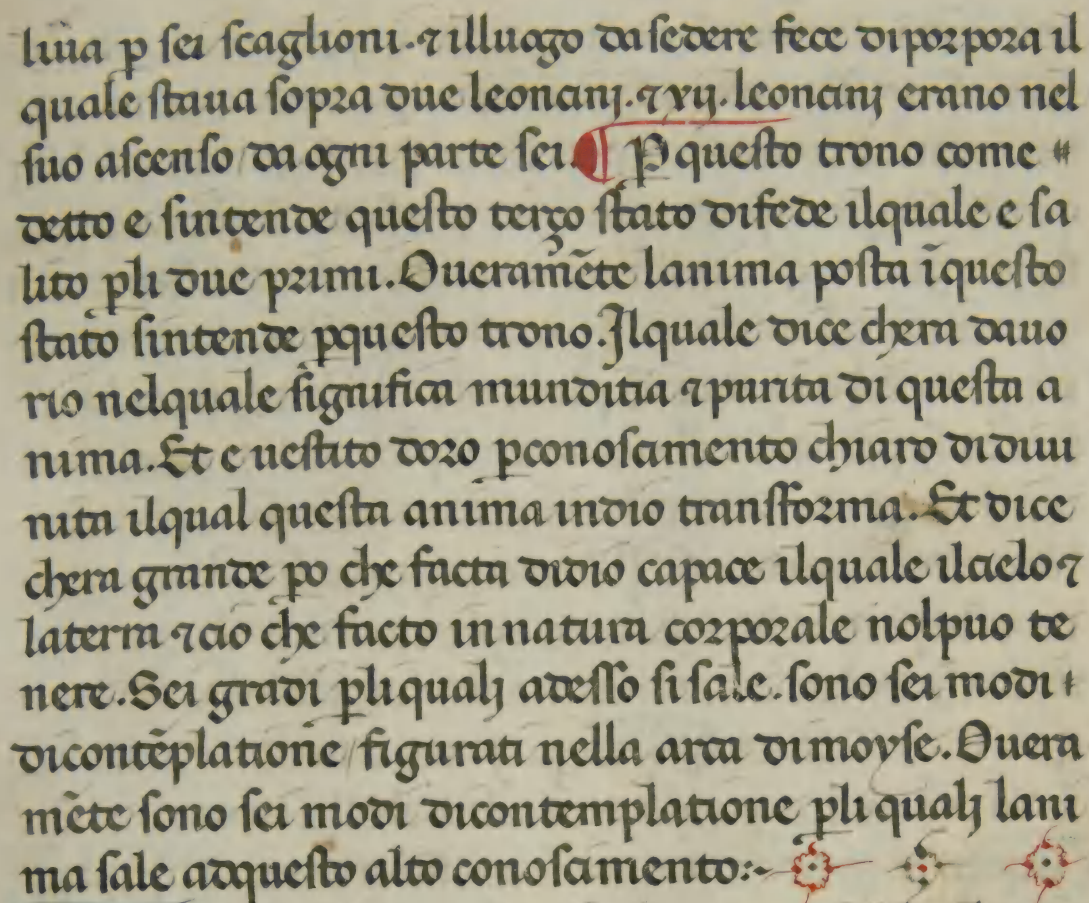 liua ꝑ sei scaglioni. ⁊ illuogo da sedere fece diporpora il
quale staua sopra due leoncinj. ⁊ xij. leoncinj erano nel
suo ascenso / da ogni parte sei. ¶ Ꝑ questo trono come
detto e sintende questo terço stato difede ilquale e sa
lito ꝑli due primi. Oueramēte lanima posta īquesto
stato sintende ꝑquesto trono. Ilquale dice chera dauo
rio nelquale significa munditia ⁊ purita di questa a
nima. Et e uestito doro ꝑconoscimento chiaro didiui
nita ilqual questa anima indio transforma. Et dice
chera grande ꝑo che facta didio capace ilquale ilcielo ⁊
laterra ⁊ cio che facto in natura corporale nolpuo te
nere. Sei gradi ꝑliqualj adesso si sale. sono sei modi
dicontēplatione / figurati nella arca di moyse. Ouera
mēte sono sei modi dicontemplatione ꝑli qualj lani
ma sale adquesto alto conoscimento:~